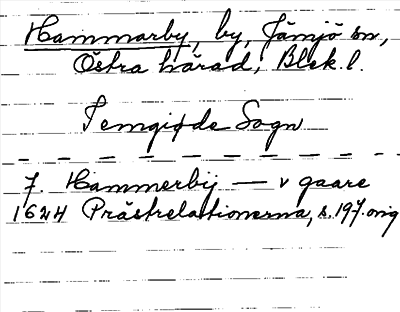 Hammarby, by, Jämjö sn,
Östra härad, Blek. l.
Jemgiøde Sogn
7. Hammerbij — v gaare
1624 Prästrelationerna, s. 197. orig